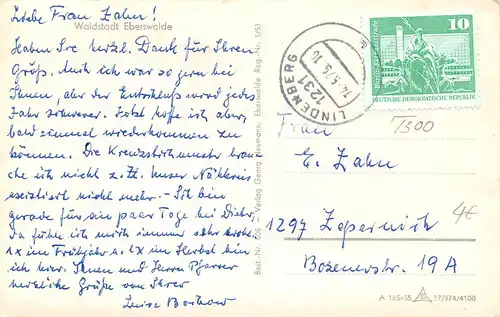 Liebe Frau Zahn!
Waldstadt Eberswalde
Haben Sie herzl. Dank für Ihren
Gruß. Auch ich war so gern bei
Ihnen, aber der Entschluß wird jedes
Jahr schwerer. Jetzt hoffe ich aber,
bald einmal wiederkommen zu
können. Die Kreuzstichmuster brau-
che ich nicht z. Zt. Unser Nähkreis
existiert nicht mehr. - Ich bin
gerade für ein paar Tage bei
da fühle ich mich immer sehr wohl.
1x im Frühjahr u. 1x im Herbst bin
ich hier. Ihnen und Herrn Pfarrer
herzliche Grüße von Ihrer
Luise
Best.-Nr. 606 - Verlag Georg Neumann, Eberswalde Reg.-Nr. 5/51
LINDENBERG
1231
14.5.75.10
10
DEUTSCHE DEMOKRATISCHE REPUBLIK
Frau
E. Zahn
1297 Zepernick
Bozenerstr. 19A
4€
A 165/35 57/974/4100